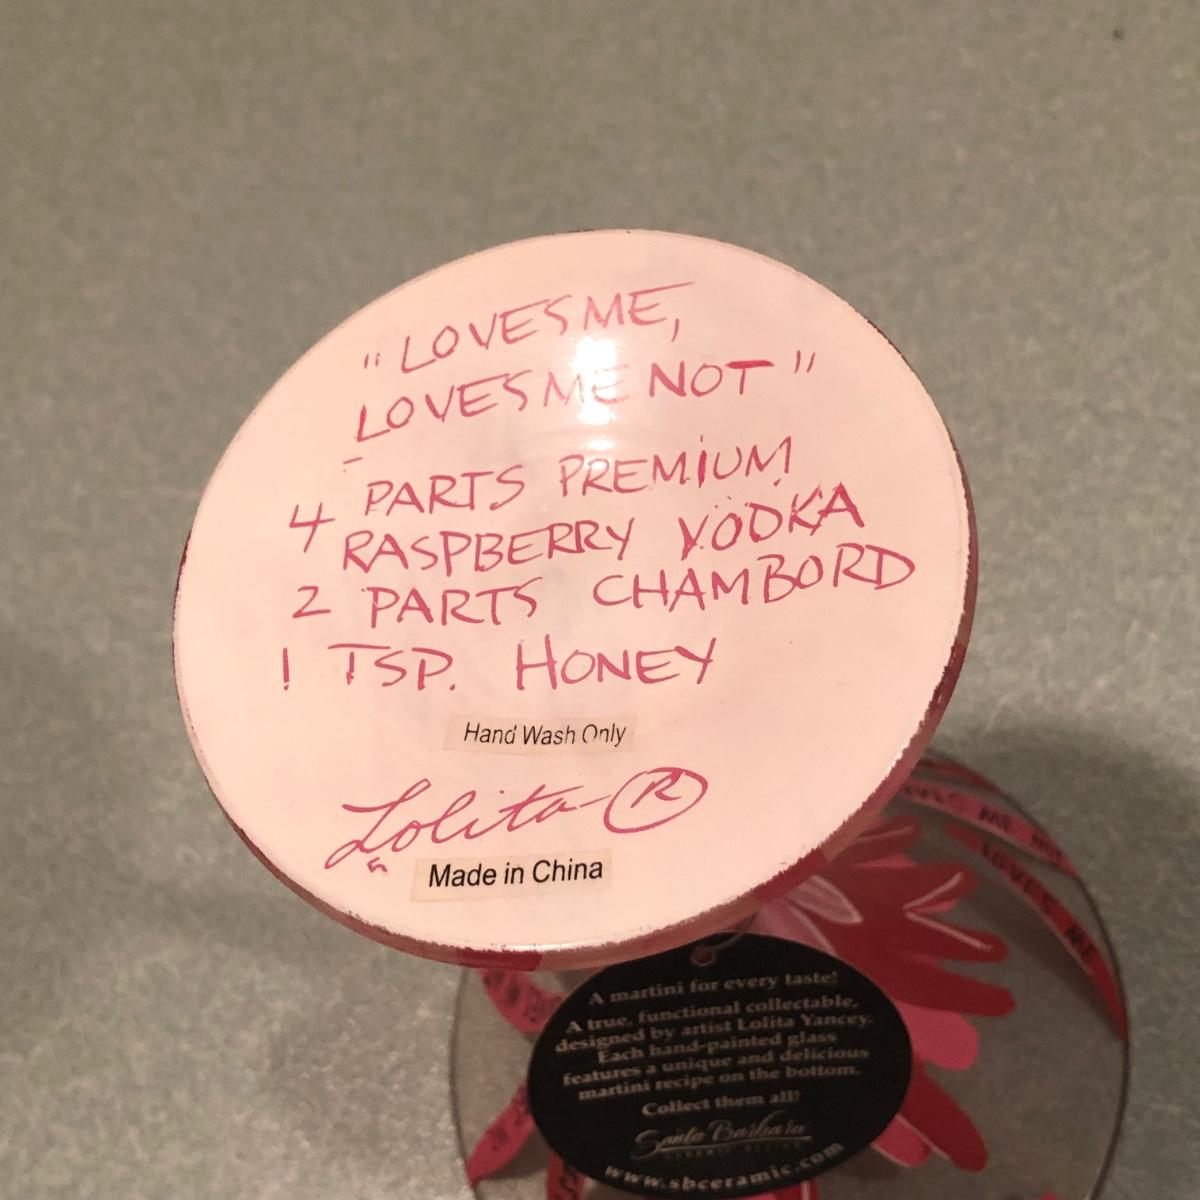 "LOVES ME,
LOVES ME NOT"
4 PARTS PREMIUM
RASPBERRY VODKA
2 PARTS CHAMBORD
1 TSP. HONEY
Hand Wash Only
Lolita ®
Made in China
LOVES ME NOT
LOVES ME
A martini for every taste!
A true, functional collectable,
designed by artist Lolita Yancey.
Each hand-painted glass
features a unique and delicious
martini recipe on the bottom.
Collect them all!
Santa Barbara
www.sbceramic.com